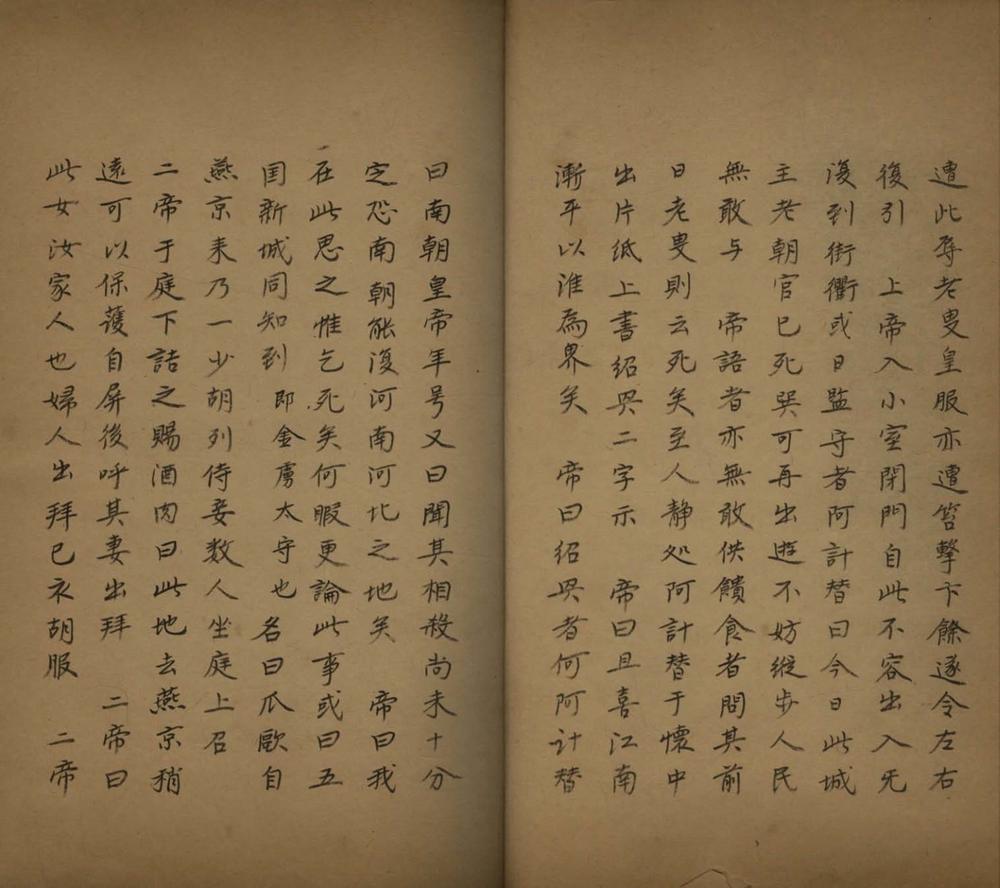 遭此辱老叟皇服亦遭笞擊卞餘遂令左右
後引　上帝入小室閉門自此不容出入旡
復到街衢或日監守者阿計替曰今日此城
主老朝官已死巽可再出遊不妨縱步人民
無敢与　帝語者亦無敢供饋食者問其前
日老叟則云死矣至人静处阿計替于懷中
出片纸上書绍興二字示　帝曰且喜江南
漸平以淮為界矣　帝曰绍興者何阿计替
曰南朝皇帝年号又曰聞其相殺尚未十分
定恐南朝能復河南河北之地矣　帝曰我
在此思之惟乞死矣何暇更論此事或曰五
国新城同知到　即金虜太守也　名曰瓜歐自
燕京来乃一少胡列侍妾数人坐庭上召
二帝于庭下詰之賜酒肉曰此地去燕京稍
遠可以保護自屏後呼其妻出拜　二帝曰
此女汝家人也婦人出拜已衣胡服　二帝